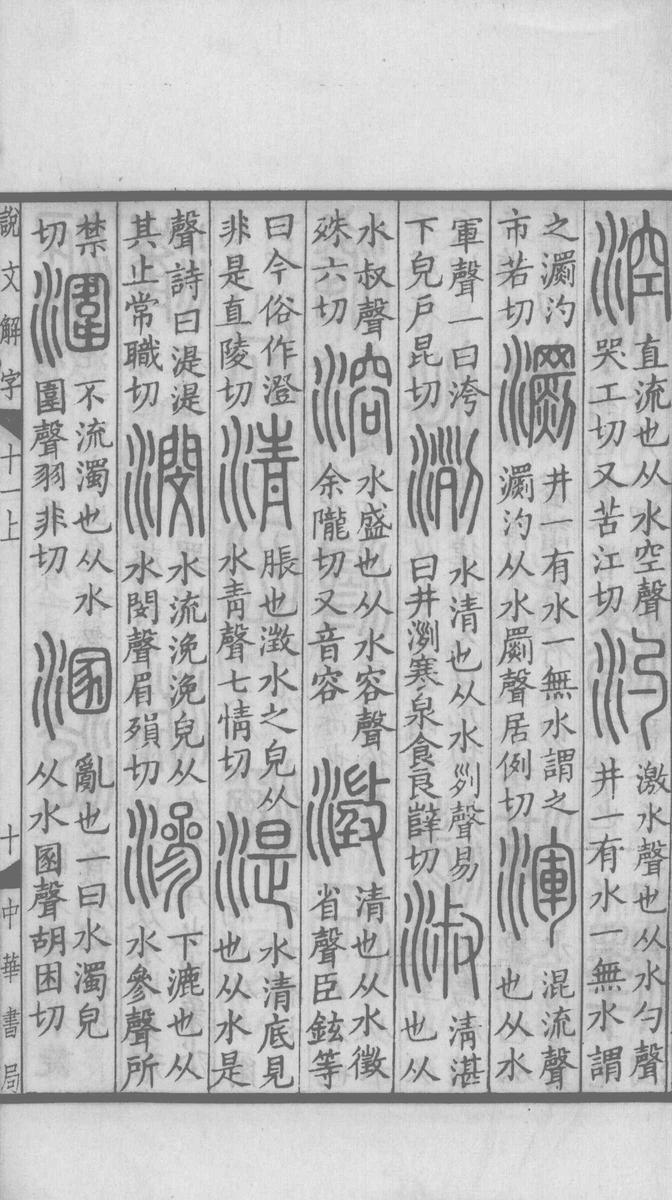 涳
直流也从水空聲
哭工切又苦江切
汋
激水聲也从水勺聲
井一有水一無水謂
之瀱汋
市若切
瀱
井一有水一無水謂之
瀱汋从水罽聲居例切
渾
混流聲
也从水
軍聲一曰洿
下皃戶昆切
洌
水清也从水列聲易
曰井洌寒泉食良辥切
淑
清湛
也从
水叔聲
殊六切
溶
水盛也从水容聲
余隴切又音容
澂
清也从水徵
省聲臣鉉等
曰今俗作澄
非是直陵切
清
朖也澂水之皃从
水青聲七情切
湜
水清底見
也从水是
聲詩曰湜湜
其止常職切
潣
水流浼浼皃从
水閔聲眉殞切
滲
下漉也从
水參聲所
禁
切
潿
不流濁也从水
圍聲羽非切
溷
亂也一曰水濁皃
从水圂聲胡困切
說文解字
十一上
十
中華書局